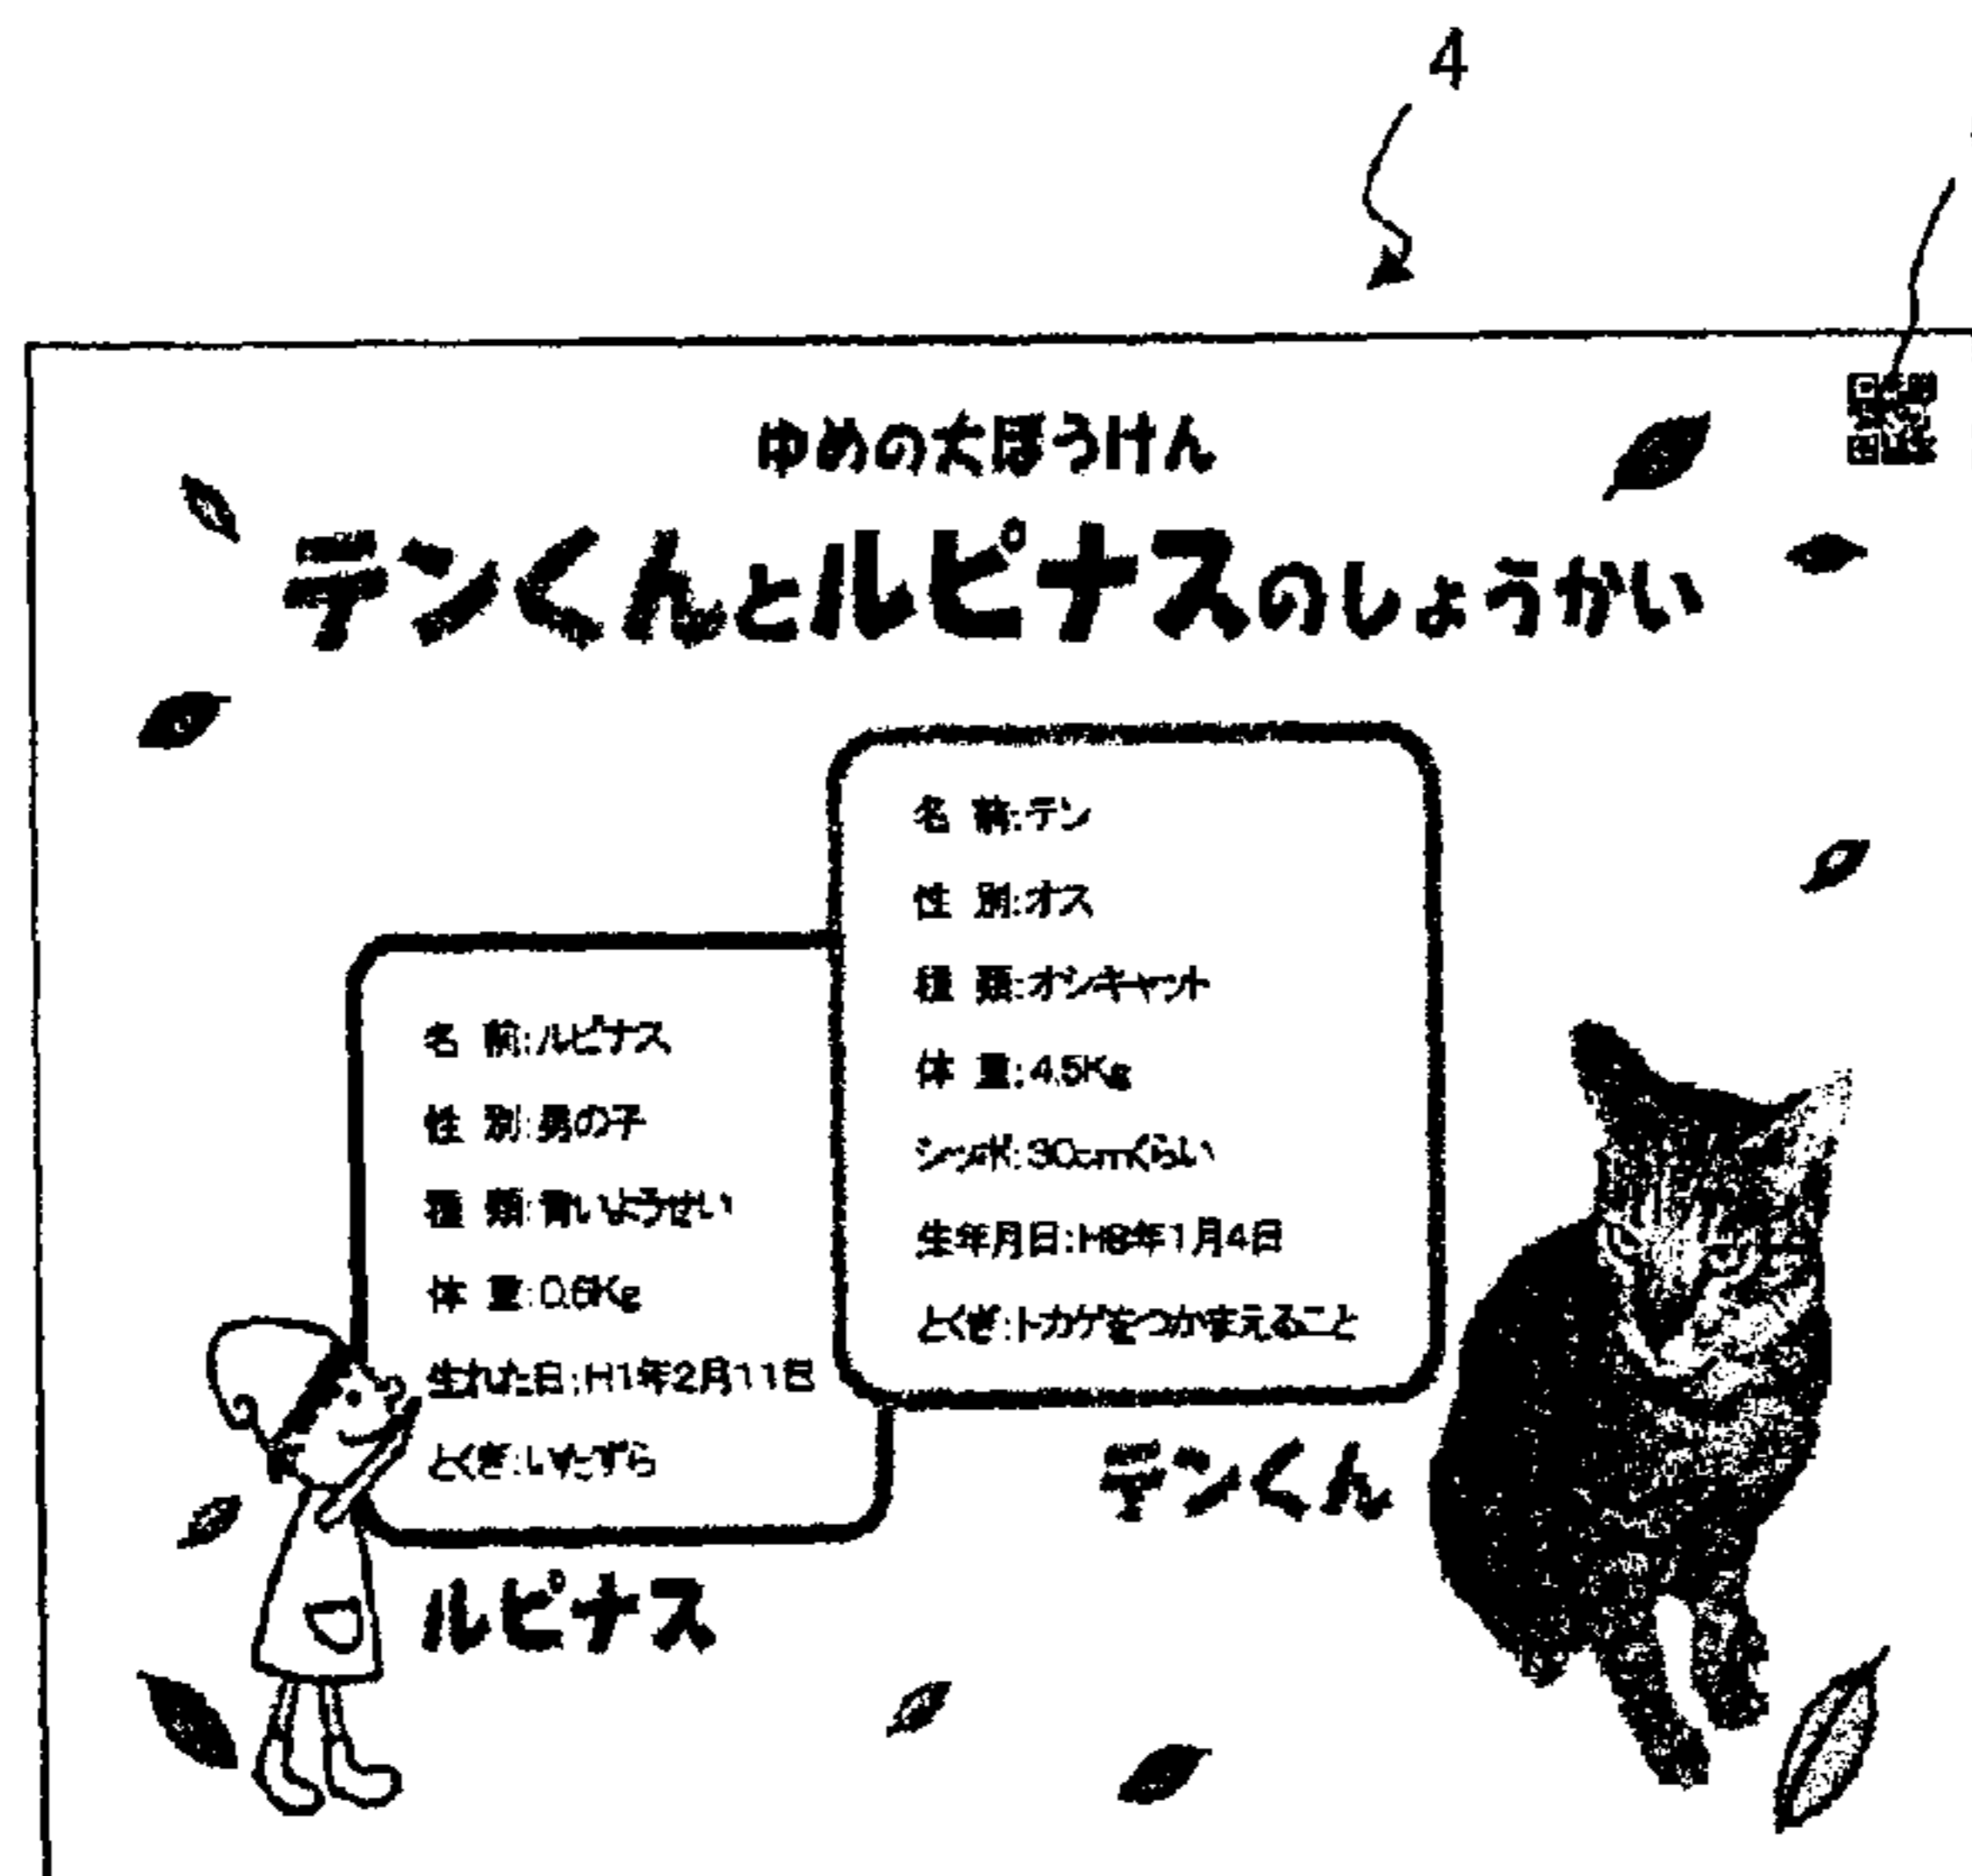 4
ゆめの大ぼうけん
テンくんとルピナスのしょうかい
名 前:テン
性 別:オス
種 類:オシキャット
体 重:4.5Kg
シッポ:30cmくらい
生年月日:H8年1月4日
とくぎ:トカゲをつかまえること
テンくん
名 前:ルピナス
性 別:男の子
種 類:青いようせい
体 重:0.6Kg
生れた日:H1年2月11日
とくぎ:いたずら
ルピナス